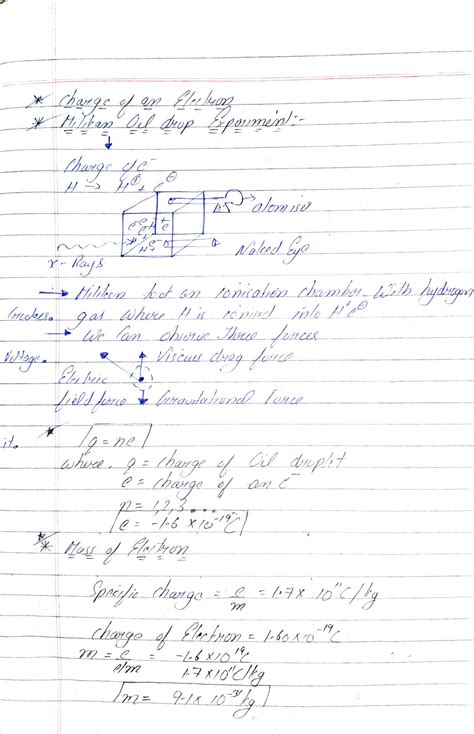 * Charge of an Electron
* Milikan Oil drop Experiment:-
Charge of e-
H → H⊕ + e⊖
atomiser
Naked Eye
r-Rays
→ Milikan took an ionisation chamber with hydrogen
gas where H is ionised into H+ e⊖
→ We Can observe three forces
Voltage.
Viscus drag force
Electric
field force
Gravitational Force
it.
* q = ne
where, q = charge of Oil droplet
e = charge of an e-
n = 1,2,3....
e = -1.6 x 10-19C
* Mass of Electron
Specific charge = e/m = 1.7 x 10^11 C/kg
charge of Electron = 1.60 x 10-19C
m = e / e/m = -1.6 x 10^19C / 1.7 x 10^11 C/kg
m = 9.1 x 10-31 kg